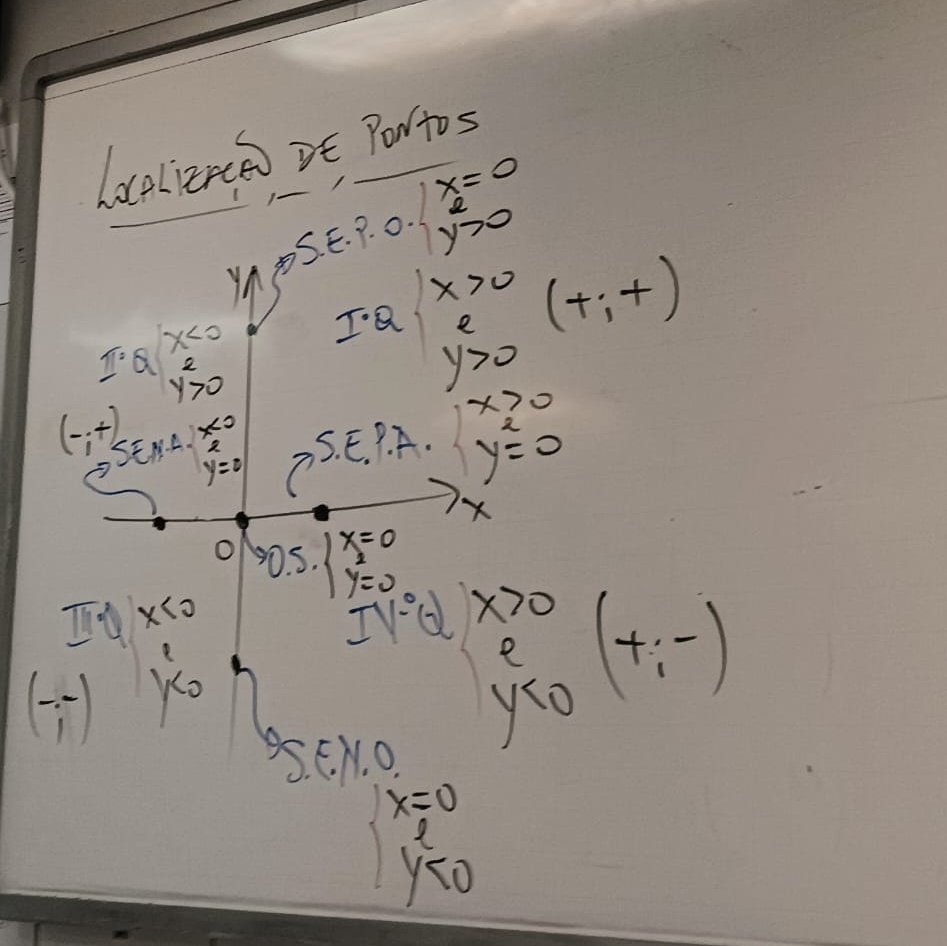 LOCALIZAÇÃO DE PONTOS
S.E.P.O. { x=0
e
y>0
y
I°Q { x>0
e
y>0
(+;+)
II°Q { x<0
e
y>0
(-;+)
S.E.N.A. { x<0
e
y=0
S.E.P.A. { x>0
e
y=0
x
0
O.S. { x=0
e
y=0
III°Q { x<0
e
y<0
(-;-)
IV°Q { x>0
e
y<0
(+;-)
S.E.N.O.
{ x=0
e
y<0